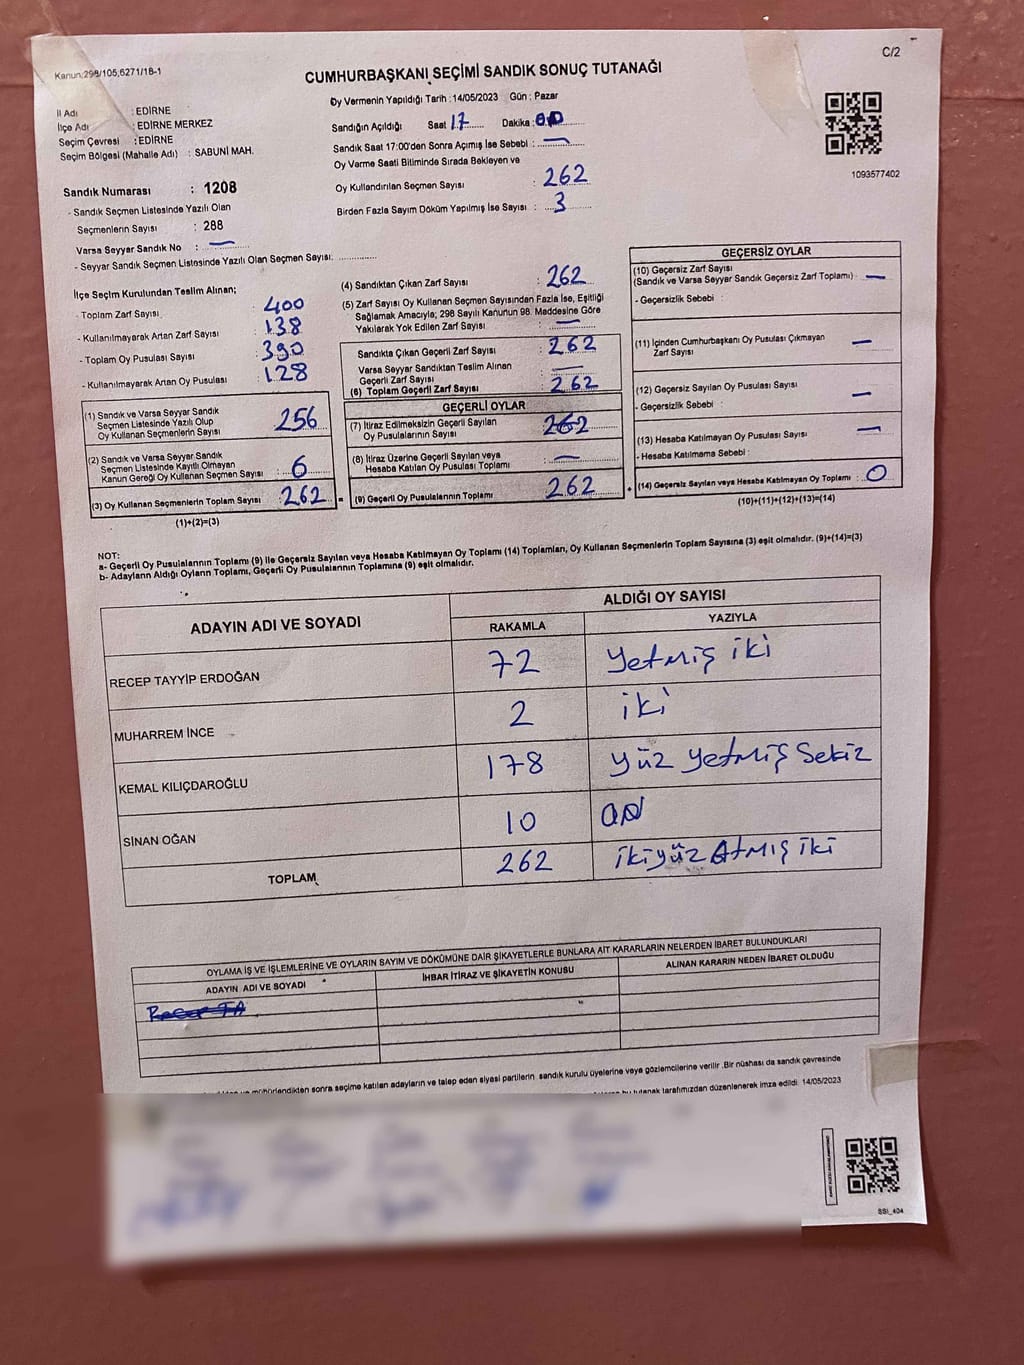 C/2
Kanun:298/105,6271/18-1
CUMHURBAŞKANI SEÇİMİ SANDIK SONUÇ TUTANAĞI
İl Adı : EDİRNE
İlçe Adı : EDİRNE MERKEZ
Seçim Çevresi : EDİRNE
Seçim Bölgesi (Mahalle Adı) : SABUNİ MAH.
Sandık Numarası : 1208
- Sandık Seçmen Listesinde Yazılı Olan
Seçmenlerin Sayısı : 288
Varsa Seyyar Sandık No : —
- Seyyar Sandık Seçmen Listesinde Yazılı Olan Seçmen Sayısı:
Oy Vermenin Yapıldığı Tarih : 14/05/2023 Gün : Pazar
Sandığın Açıldığı Saat 17 Dakika : 00
Sandık Saat 17:00'den Sonra Açımış İse Sebebi : —
Oy Varme Saati Bitiminde Sırada Bekleyen ve
Oy Kullandırılan Seçmen Sayısı : 262
Birden Fazla Sayım Döküm Yapılmış İse Sayısı : 3
1093577402
İlçe Seçim Kurulundan Teslim Alınan;
- Toplam Zarf Sayısı : 400
- Kullanılmayarak Artan Zarf Sayısı : 138
- Toplam Oy Pusulası Sayısı : 390
- Kullanılmayarak Artan Oy Pusulası : 128
(1) Sandık ve Varsa Seyyar Sandık
Seçmen Listesinde Yazılı Olup
Oy Kullanan Seçmenlerin Sayısı : 256
(2) Sandık ve Varsa Seyyar Sandık
Seçmen Listesinde Kayıtlı Olmayan
Kanun Gereği Oy Kullanan Seçmen Sayısı : 6
(3) Oy Kullanan Seçmenlerin Toplam Sayısı : 262
(1)+(2)=(3)
(4) Sandıktan Çıkan Zarf Sayısı : 262
(5) Zarf Sayısı Oy Kullanan Seçmen Sayısından Fazla İse, Eşitliği
Sağlamak Amacıyla; 298 Sayılı Kanunun 98. Maddesine Göre
Yakılarak Yok Edilen Zarf Sayısı : —
Sandıkta Çıkan Geçerli Zarf Sayısı : 262
Varsa Seyyar Sandıktan Teslim Alınan
Geçerli Zarf Sayısı : —
(6) Toplam Geçerli Zarf Sayısı : 262
GEÇERLİ OYLAR
(7) İtiraz Edilmeksizin Geçerli Sayılan
Oy Pusulalarının Sayısı : 262
(8) İtiraz Üzerine Geçerli Sayılan veya
Hesaba Katılan Oy Pusulası Toplamı : —
= (9) Geçerli Oy Pusulalarının Toplamı : 262
GEÇERSİZ OYLAR
(10) Geçersiz Zarf Sayısı
(Sandık ve Varsa Seyyar Sandık Geçersiz Zarf Toplamı) : —
- Geçersizlik Sebebi :
(11) İçinden Cumhurbaşkanı Oy Pusulası Çıkmayan
Zarf Sayısı : —
(12) Geçersiz Sayılan Oy Pusulası Sayısı : —
- Geçersizlik Sebebi :
(13) Hesaba Katılmayan Oy Pusulası Sayısı : —
- Hesaba Katılmama Sebebi :
+ (14) Geçersiz Sayılan veya Hesaba Katılmayan Oy Toplamı : 0
(10)+(11)+(12)+(13)=(14)
NOT:
a- Geçerli Oy Pusulalarının Toplamı (9) ile Geçersiz Sayılan veya Hesaba Katılmayan Oy Toplamı (14) Toplamları, Oy Kullanan Seçmenlerin Toplam Sayısına (3) eşit olmalıdır. (9)+(14)=(3)
b- Adayların Aldığı Oyların Toplamı, Geçerli Oy Pusulalarının Toplamına (9) eşit olmalıdır.
ADAYIN ADI VE SOYADI
ALDIĞI OY SAYISI
RAKAMLA YAZIYLA
RECEP TAYYİP ERDOĞAN 72 Yetmiş iki
MUHARREM İNCE 2 iki
KEMAL KILIÇDAROĞLU 178 yüz yetmiş sekiz
SİNAN OĞAN 10 on
TOPLAM 262 ikiyüz Atmış iki
OYLAMA İŞ VE İŞLEMLERİNE VE OYLARIN SAYIM VE DÖKÜMÜNE DAİR ŞİKAYETLERLE BUNLARA AİT KARARLARIN NELERDEN İBARET BULUNDUKLARI
ADAYIN ADI VE SOYADI İHBAR İTİRAZ VE ŞİKAYETİN KONUSU ALINAN KARARIN NEDEN İBARET OLDUĞU
mühürlendikten sonra seçime katılan adayların ve talep eden siyasi partilerin sandık kurulu üyelerine veya gözlemcilerine verilir .Bir nüshası da sandık çevresinde
bu tutanak tarafımızdan düzenlenerek imza edildi. 14/05/2023
SSI_404